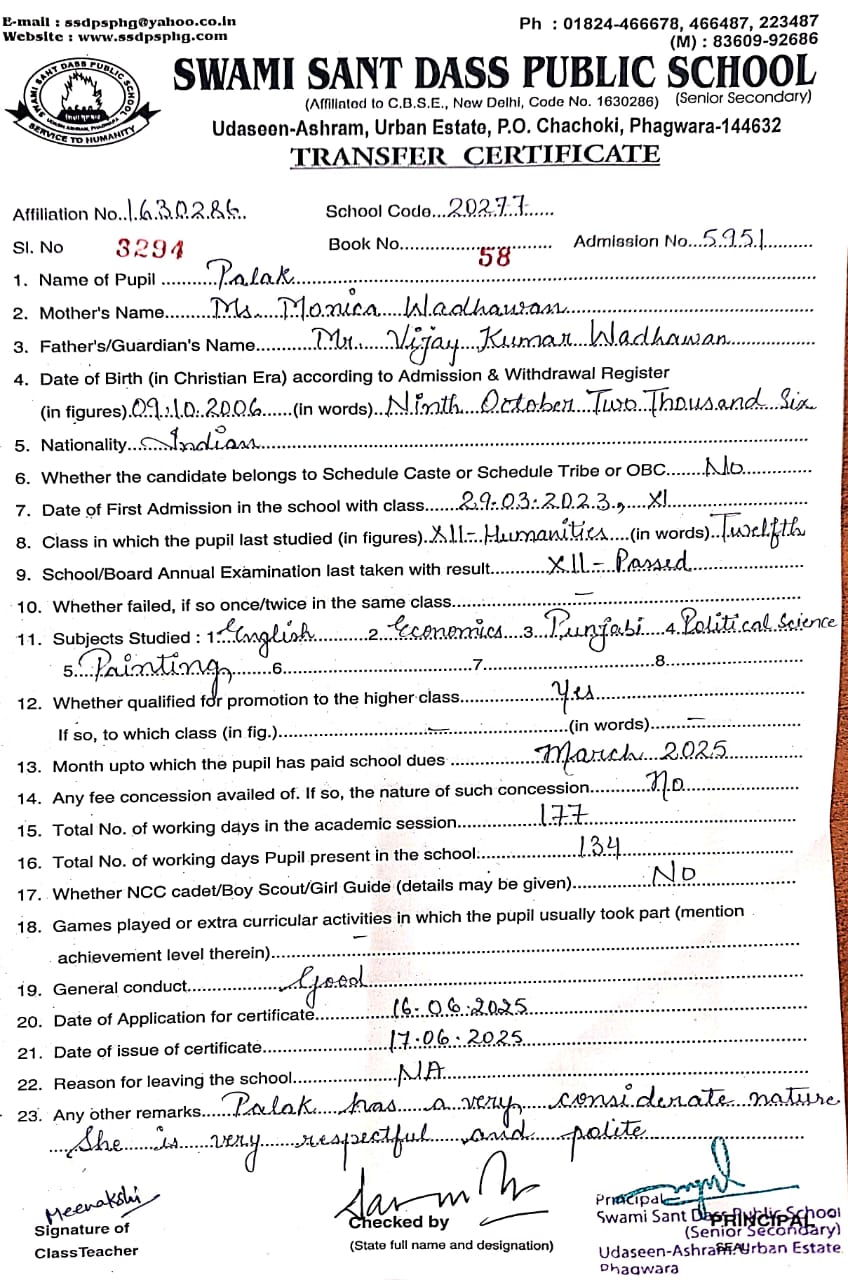 E-mail : ssdpsphg@yahoo.co.in
Website : www.ssdpsphg.com
Ph : 01824-466678, 466487, 223487
(M) : 83609-92686
SWAMI SANT DASS PUBLIC SCHOOL
SWAMI SANT DASS PUBLIC SCHOOL
SERVICE TO HUMANITY
(Affiliated to C.B.S.E., New Delhi, Code No. 1630286) (Senior Secondary)
Udaseen-Ashram, Urban Estate, P.O. Chachoki, Phagwara-144632
TRANSFER CERTIFICATE
Affiliation No. 1630286 School Code 20277
Sl. No 3294 Book No. 58 Admission No. 5951
1. Name of Pupil Palak
2. Mother's Name Ms. Monica Wadhawan
3. Father's/Guardian's Name Mr. Vijay Kumar Wadhawan
4. Date of Birth (in Christian Era) according to Admission & Withdrawal Register
(in figures) 09.10.2006 (in words) Ninth October Two Thousand Six
5. Nationality Indian
6. Whether the candidate belongs to Schedule Caste or Schedule Tribe or OBC No
7. Date of First Admission in the school with class 29.03.2023, XI
8. Class in which the pupil last studied (in figures) XII-Humanities (in words) Twelfth
9. School/Board Annual Examination last taken with result XII - Passed
10. Whether failed, if so once/twice in the same class —
11. Subjects Studied : 1. English 2. Economics 3. Punjabi 4. Political Science
5. Painting 6. 7. 8.
12. Whether qualified for promotion to the higher class Yes
If so, to which class (in fig.) — (in words) —
13. Month upto which the pupil has paid school dues March 2025
14. Any fee concession availed of. If so, the nature of such concession No
15. Total No. of working days in the academic session 177
16. Total No. of working days Pupil present in the school 134
17. Whether NCC cadet/Boy Scout/Girl Guide (details may be given) No
18. Games played or extra curricular activities in which the pupil usually took part (mention
achievement level therein) —
19. General conduct Good
20. Date of Application for certificate 16.06.2025
21. Date of issue of certificate 17.06.2025
22. Reason for leaving the school NA
23. Any other remarks Palak has a very considerate nature
She is very respectful and polite
Meenakshi
Signature of
ClassTeacher
Checked by
(State full name and designation)
Principal
Swami Sant Dass Public School
PRINCIPAL
(Senior Secondary)
SEAL
Udaseen-Ashram Urban Estate
Phagwara